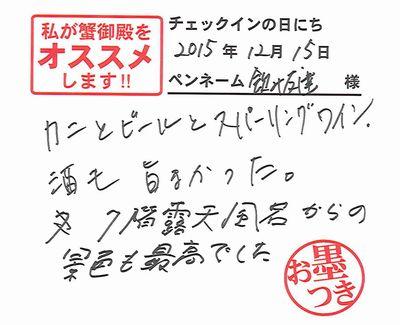 私が蟹御殿を
オススメ
します!!
チェックインの日にち
2015年12月15日
ペンネーム 様
カニとビールとスパーリングワイン.
酒も旨まかった。
7階露天風呂からの
景色も最高でした
お墨つき